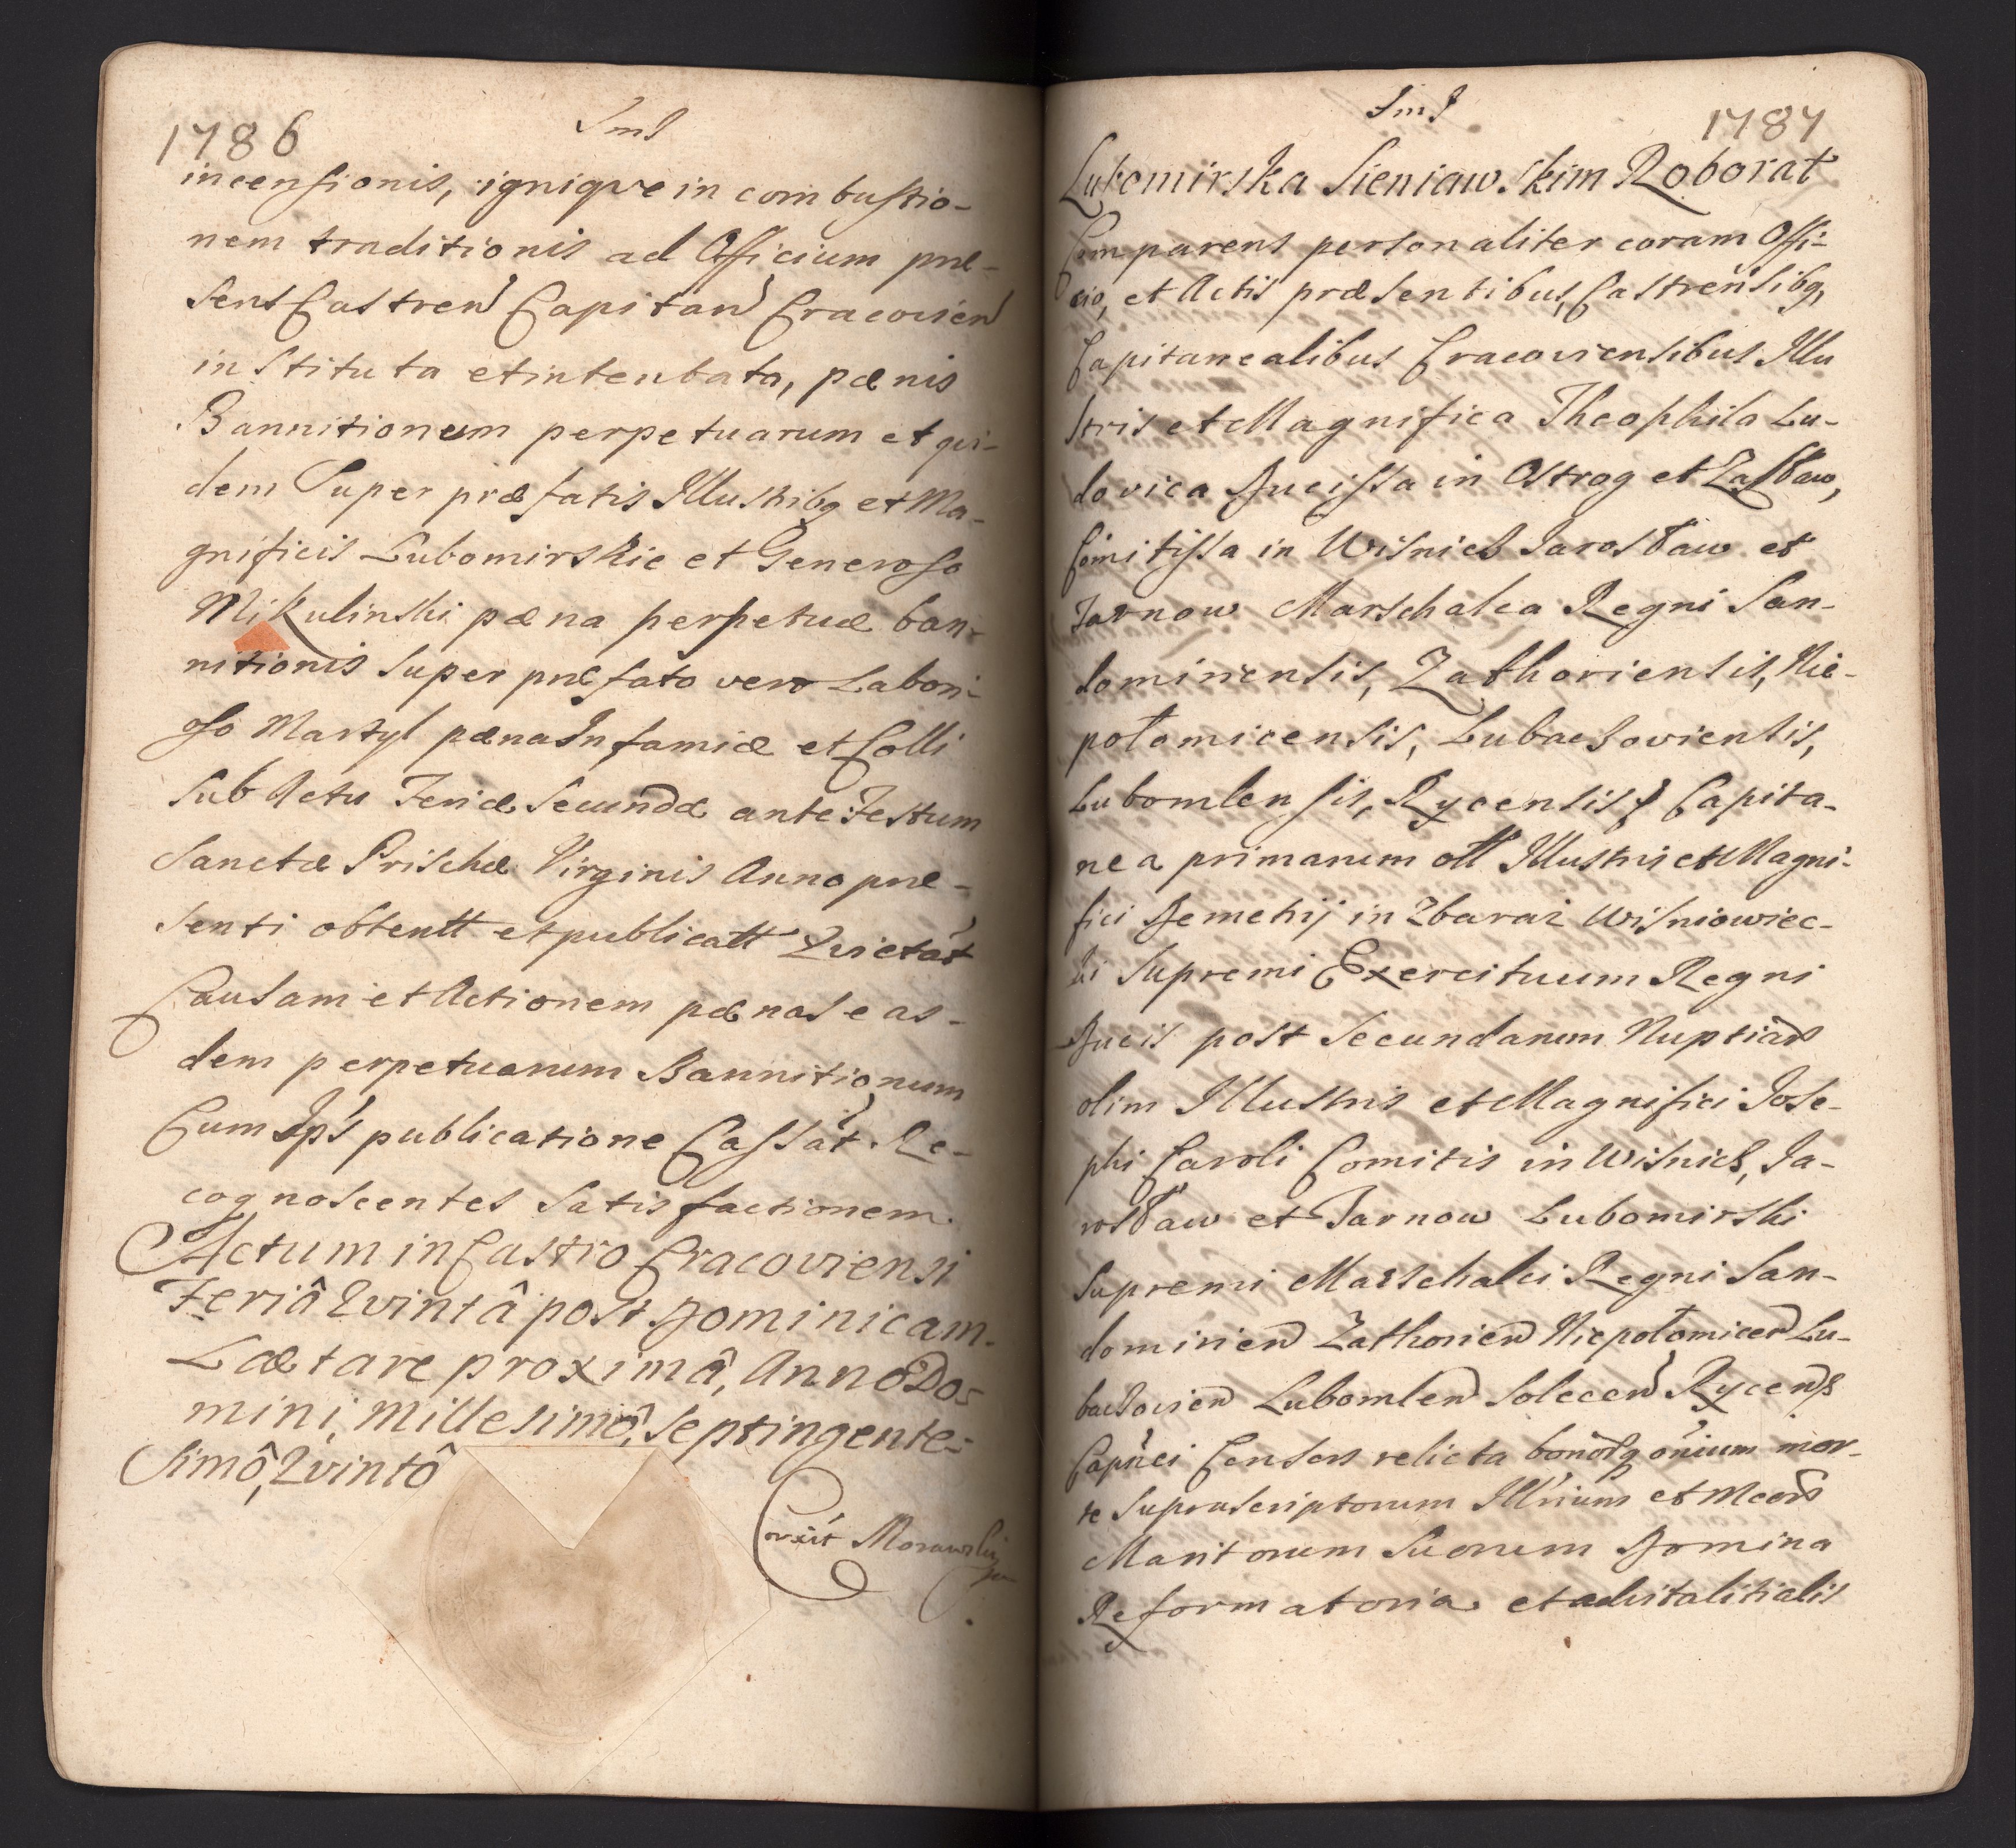 1786
incensionis, igniqve in combustio-
nem traditionis ad Officium præ-
sens Castren Capitan Cracovien
instituta et intentata, pænis
Bannitionum perpetuarum et qvi-
dem Super præfatis Illustribq et Ma-
gnificis Lubomirskie et Generoso
Mikulinski pæna perpetuæ ban-
nitionis super præfato vero Labori-
oso Martyl pæna Infamiæ et Colli
Sub Actu Feriæ Secundæ ante Festum
Sanctæ Prischæ Virginis Anno præ-
senti obtentt et publicatt Qvietat
Causam et Actionem pænas eas-
dem perpetuarum Bannitionum
Cum Ips publicatione Cassat Re-
cognoscentes Satisfactionem.
Actum in Castro Cracoviensi
Feriâ Qvintâ post Dominicam
Lætare proximâ, Annô Do-
mini, Millesimô, Septingente-
Simô, Qvintô
Corexit Morawski
1787
Lubomirska Sieniawskim Roborat
Comparens personaliter coram Offi-
cio, et Actis præsentibus, Castrensibq,
Capitanealibus Cracoviensibus Illu
stris et Magnifica Theophila Lu-
dovica Ducissa in Ostrog et Zasław,
Comitissa in Wisnicz Jarosław et
Tarnow Marschalca Regni San-
domiriensis, Zathoriensis, Nie-
połomicensis, Lubaczoviensis,
Lubomlensis, Rycensisq Capita-
nea primarum olt Illustris et Magni-
fici Demetrij in Zbaraz Wisniowiec-
ki Supremi Exercituum Regni
Ducis post Secundarum Nuptiar
olim Illustris et Magnifici Jose-
phi Caroli Comitis in Wisnicz, Ja-
rosław et Tarnow Lubomirski
Supremi Marschalci Regni San-
domirien Zathorien Niepołomicen Lu-
baczovien Lubomlen Solecen Rycenq
Capnei Consors relicta bonorq onium mor-
te Suprascriptorum Illrium et Mcor
Maritorum Suorum Domina
Reformatoria et advitalitialis